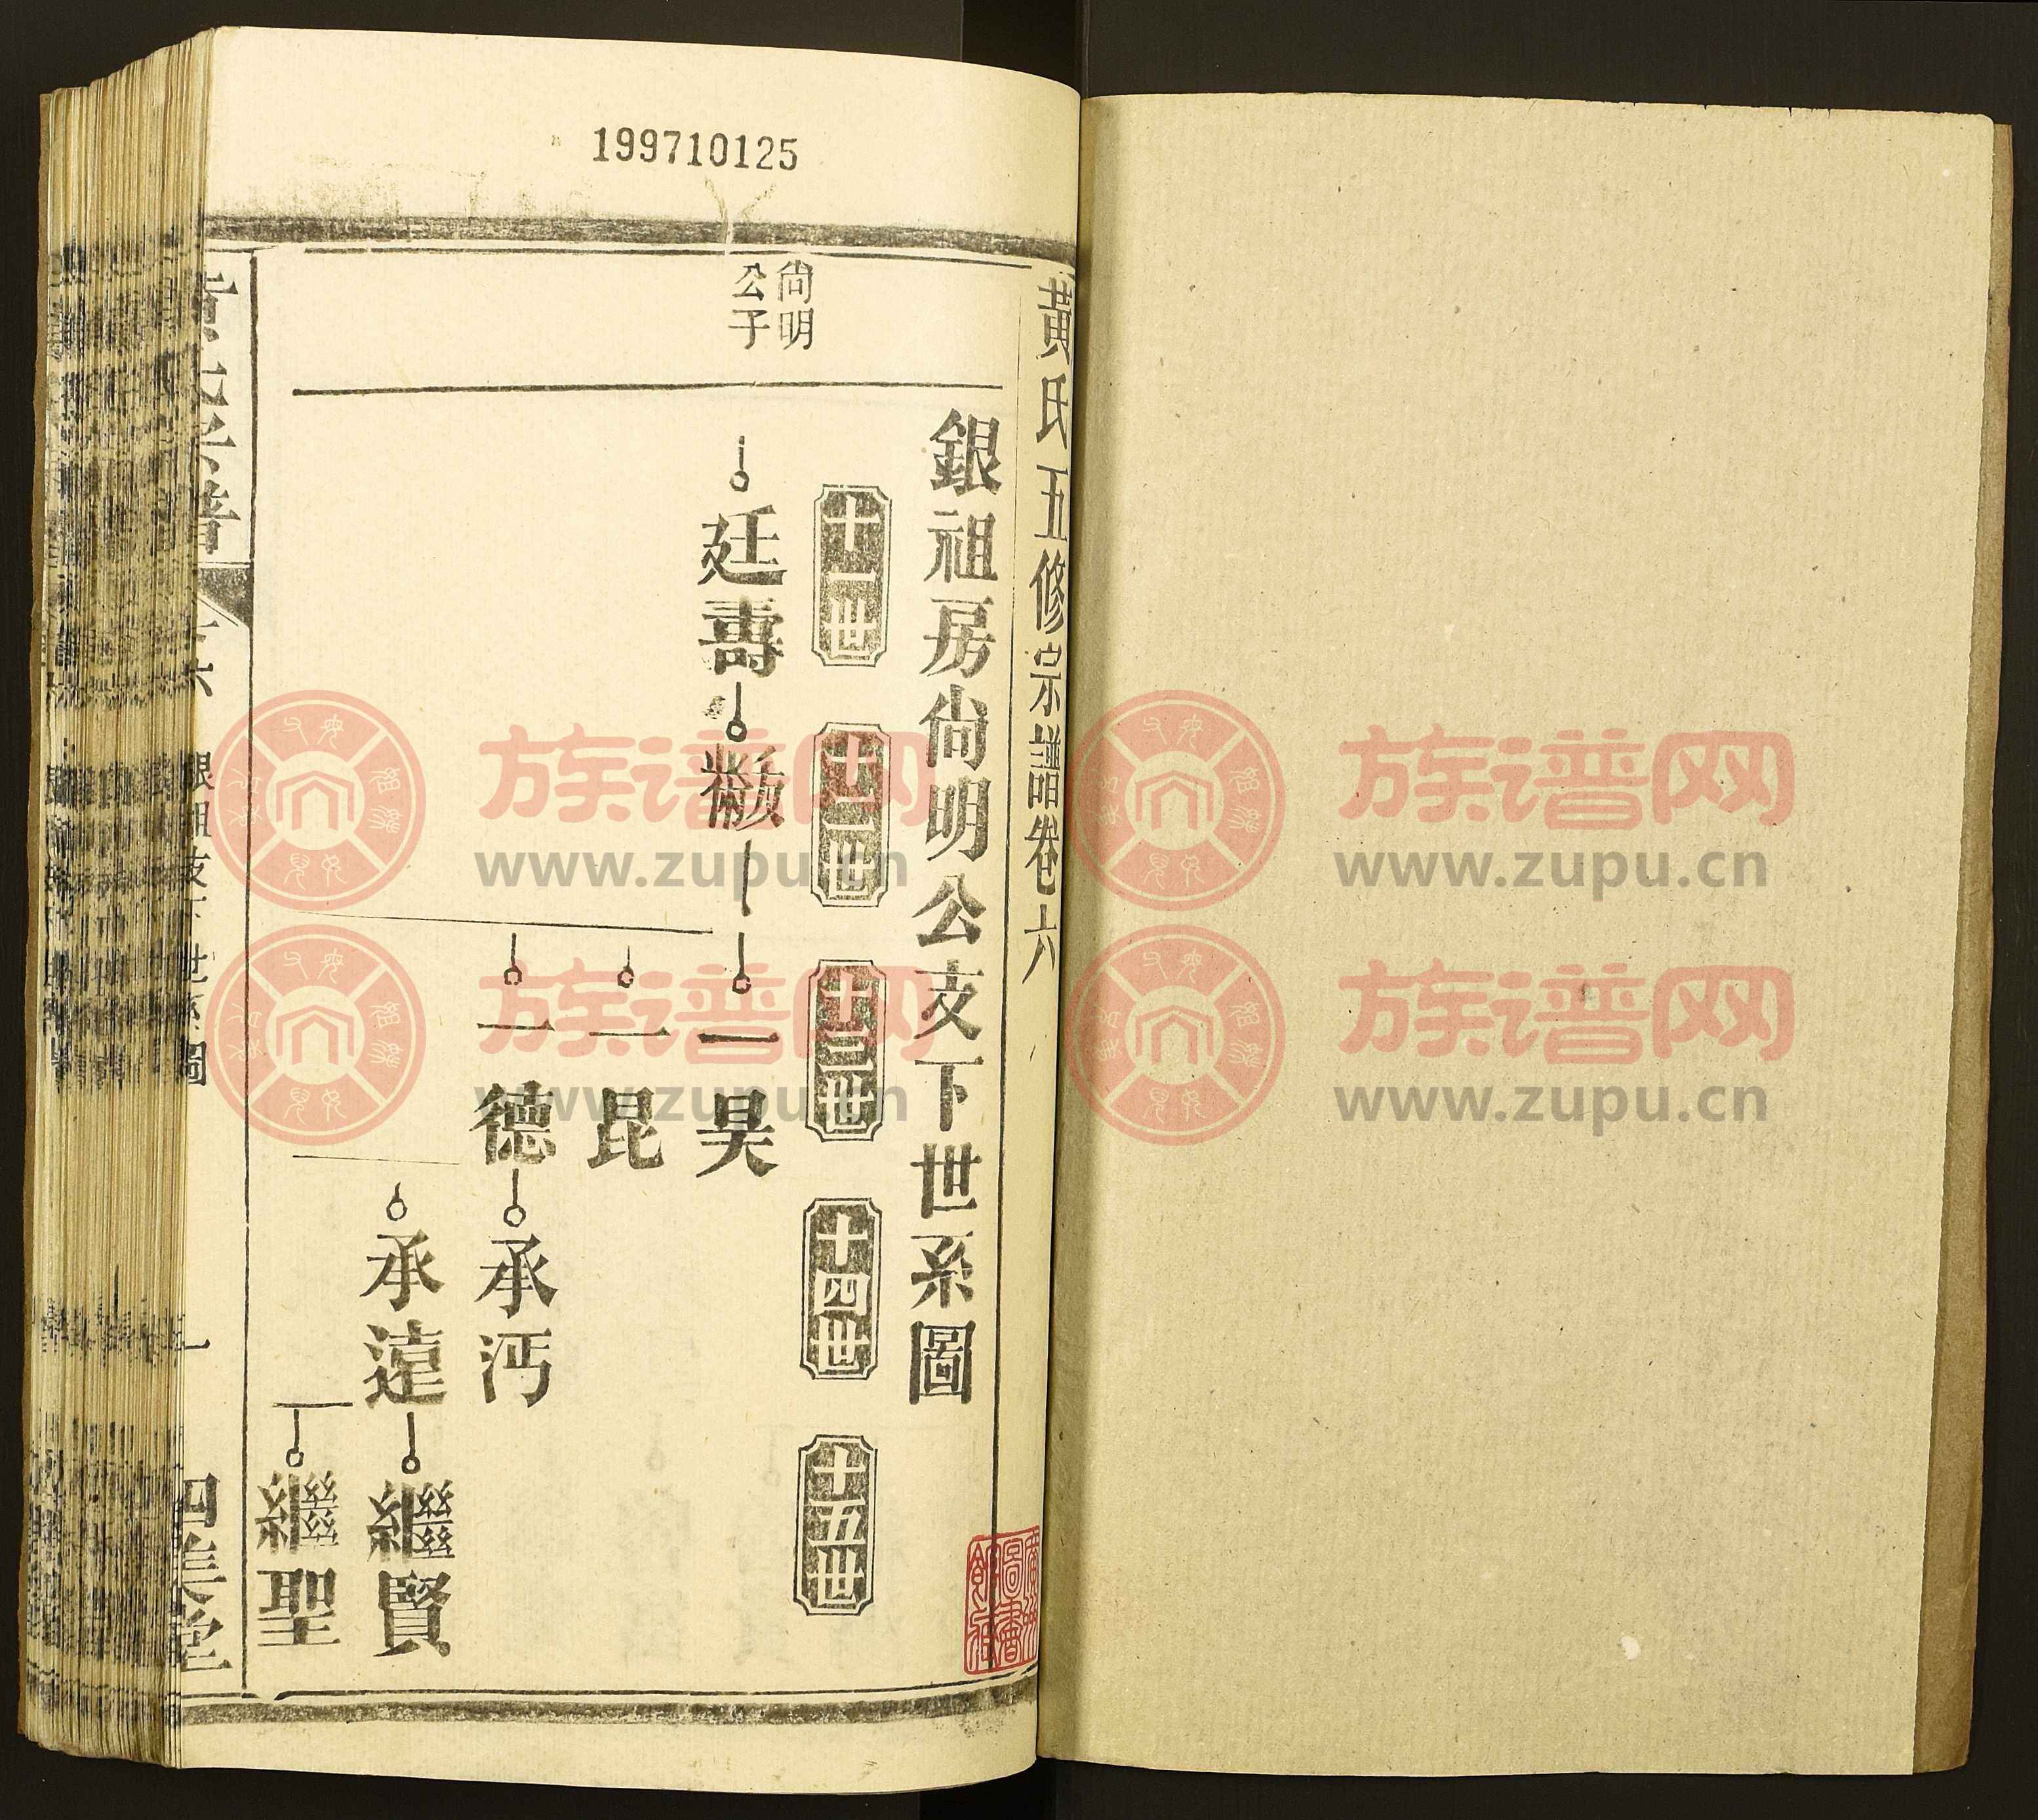 199710125
黃氏五修宗譜卷六
銀祖房尙明公支下世系圖
十一世
十二世
十三世
十四世
十五世
尙明
公子
廷壽
一昊
一昆
一德
承沔
承遠
繼賢
繼聖
四美堂
族谱网
www.zupu.cn
族谱网
www.zupu.cn
族谱网
www.zupu.cn
族谱网
www.zupu.cn